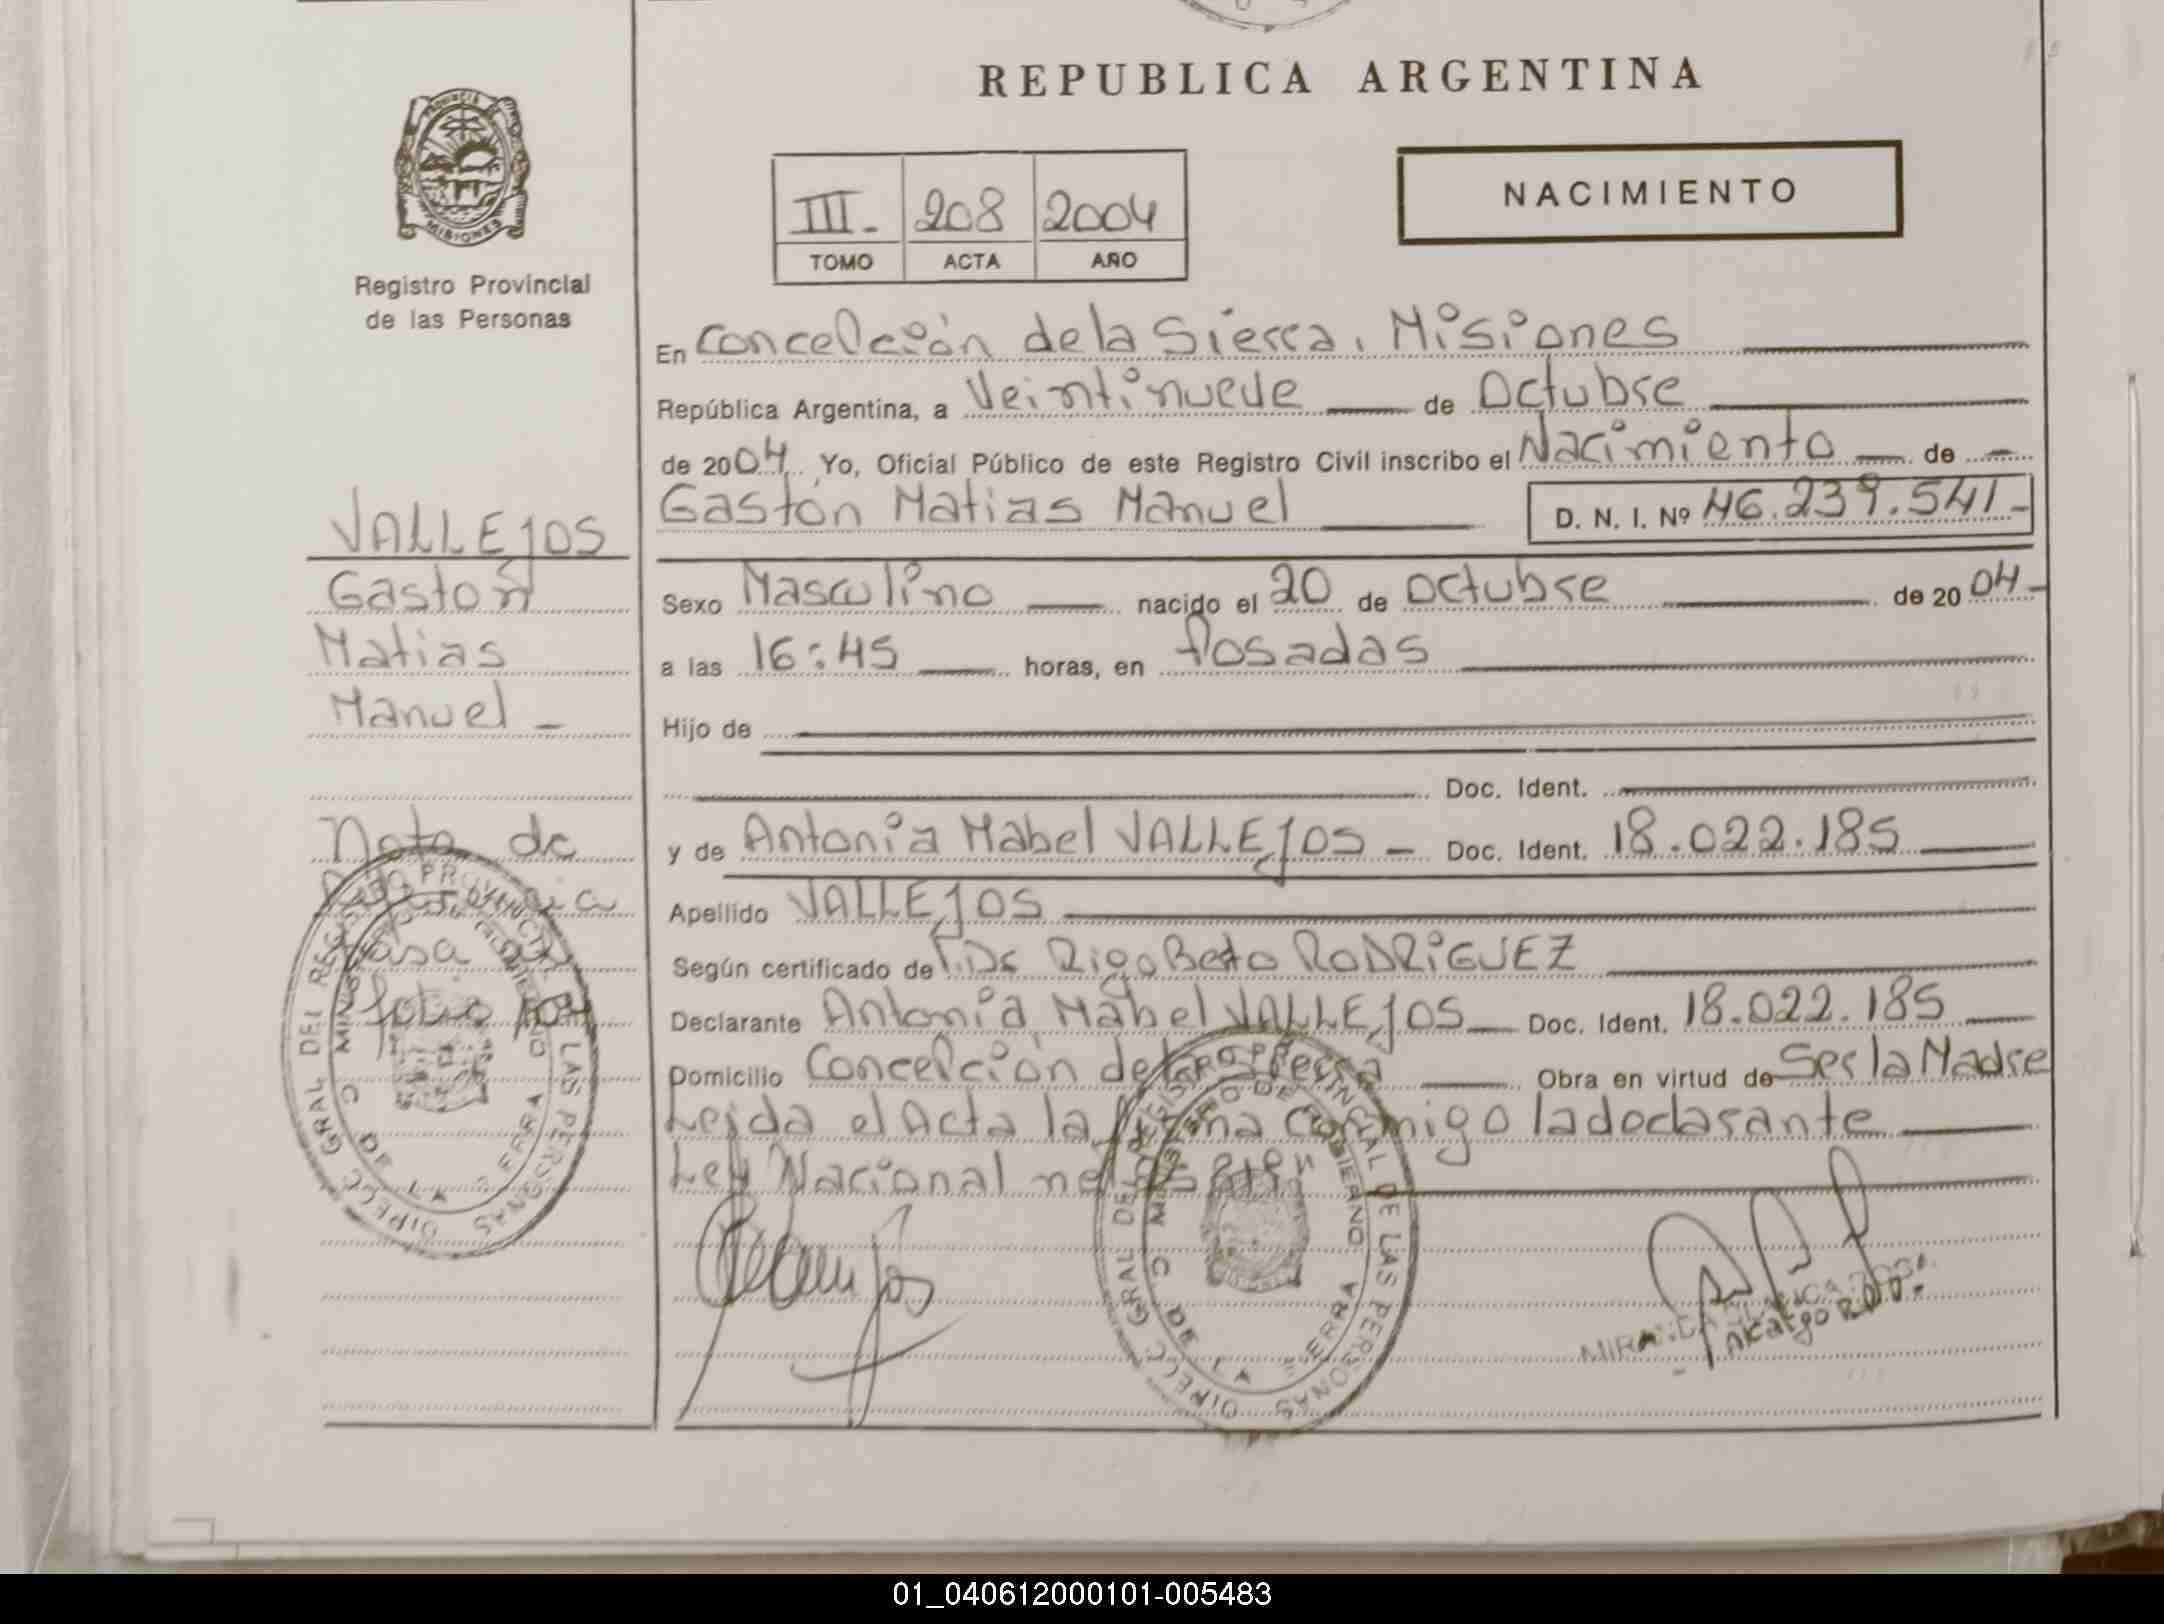 REPUBLICA ARGENTINA
PROVINCIA DE
MISIONES
Registro Provincial
de las Personas
III. 208 2004
TOMO ACTA AÑO
NACIMIENTO
En Concepción de la Sierra, Misiones
República Argentina, a Veintinueve de Octubre
de 2004. Yo, Oficial Público de este Registro Civil inscribo el Nacimiento de
Gastón Matias Manuel D. N. I. Nº 46.239.541-
Sexo Masculino nacido el 20 de Octubre de 2004-
a las 16:45 horas, en Posadas
Hijo de
Doc. Ident.
y de Antonia Mabel VALLEJOS - Doc. Ident. 18.022.185
Apellido VALLEJOS
Según certificado de Dr Rigoberto RODRIGUEZ
Declarante Antonia Mabel VALLEJOS Doc. Ident. 18.022.185
Domicilio Concepción de la Sierra Obra en virtud de Ser la Madre
Leida el Acta la firma conmigo la declarante
Ley Nacional
VALLEJOS
Gastón
Matias
Manuel -
Nota de
pasa
folio
DIREC. GRAL DEL REGISTRO PROVINCIAL DE LAS PERSONAS
MINISTERIO DE GOBIERNO
C. DE LA SIERRA
DIREC. GRAL DEL REGISTRO PROVINCIAL DE LAS PERSONAS
MINISTERIO DE GOBIERNO
C. DE LA SIERRA
A/Cargo R.P.P.
01_040612000101-005483